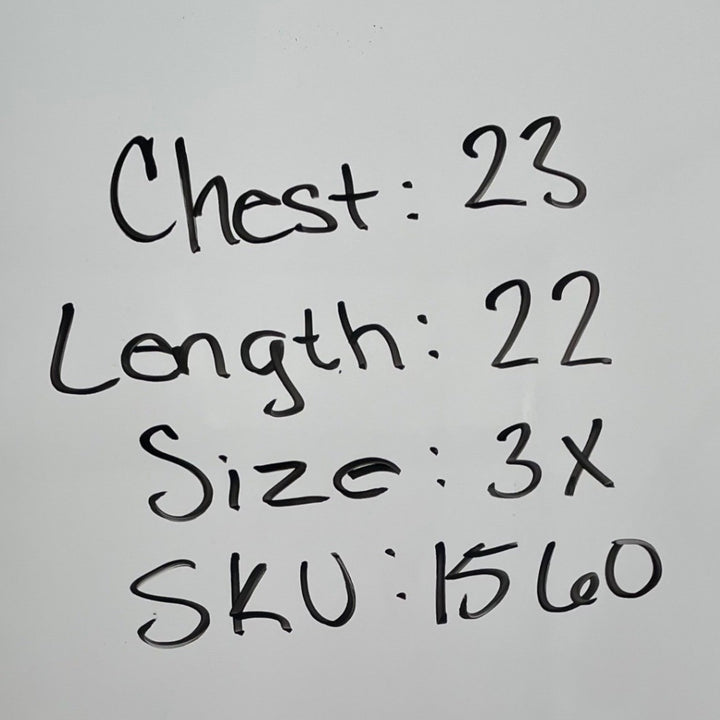 Chest: 23
Length: 22
Size: 3X
SKU: 1560